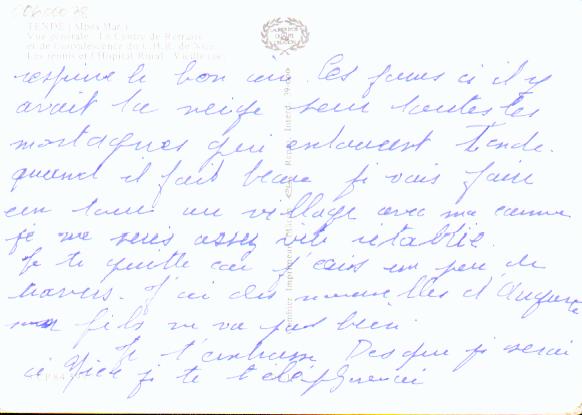 TENDE (Alpes Mar.)
Vue générale - Le Centre de Retraite
et de Convalescence du C.H.R. de Nice
Les tennis et l'Hôpital Rural
respire le bon air. Ces jours ci il y
avait la neige sur toutes les
montagnes qui entourent Tende.
quand il fait beau je vais faire
un tour au village avec ma canne
je me suis assez vite rétablie.
Je te quitte car j'écris un peu de
travers. J'ai des nouvelles d'
fils ne va pas bien
Je t'embrasse Dès que je serai
à Nice je te téléphonerai